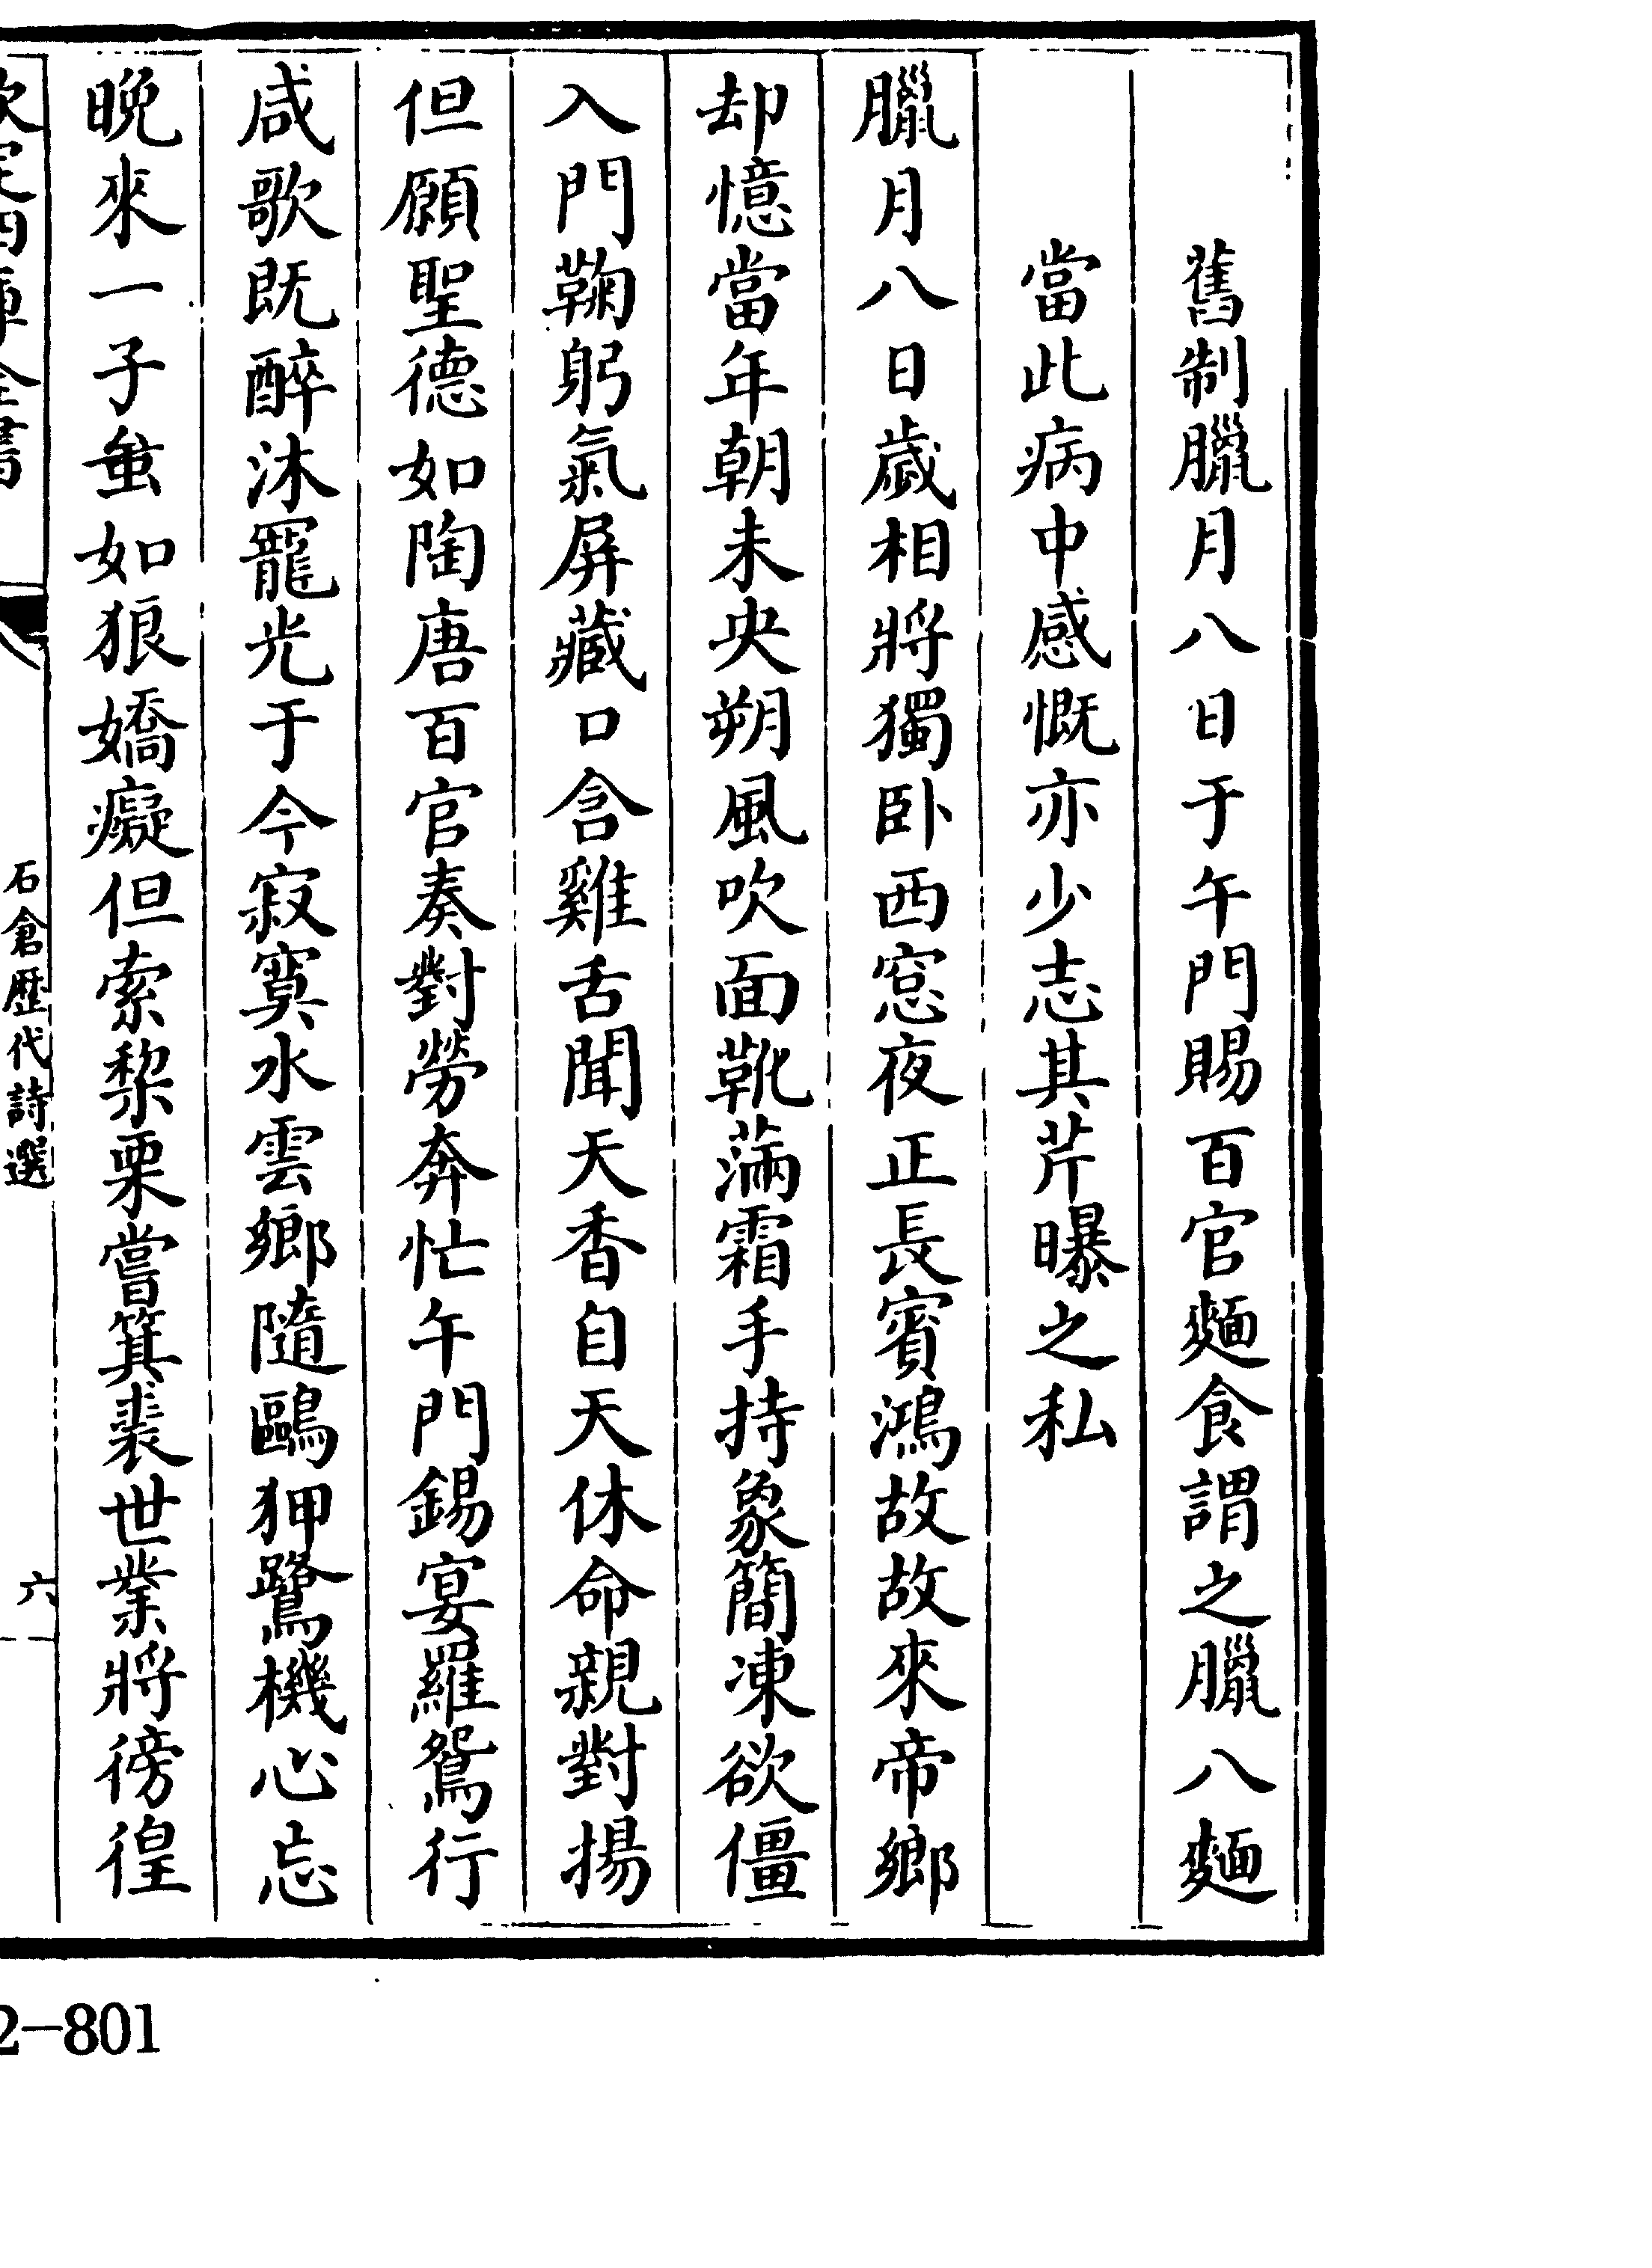 舊制臘月八日于午門賜百官麵食謂之臘八麵
當此病中感慨亦少志其芹曝之私
臘月八日歲相將獨卧西窓夜正長賓鴻故故來帝鄉
却憶當年朝未央朔風吹面靴滿霜手持象簡凍欲僵
入門鞠躬氣屏藏口含雞舌聞天香自天休命親對揚
但願聖德如陶唐百官奏對勞奔忙午門錫宴羅鴛行
咸歌既醉沐寵光于今寂寞水雲鄉隨鷗狎鷺機心忘
晚來一子蚩如狼嬌癡但索棃栗嘗箕裘世業將徬徨
欽定四庫全書
石倉歷代詩選
六
2-801